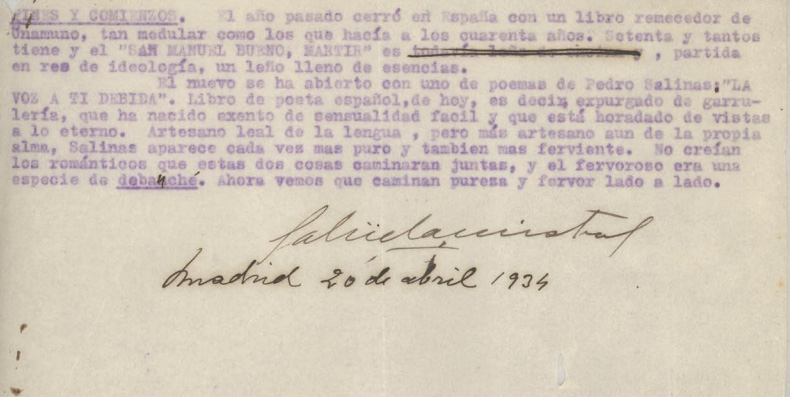 FINES Y COMIENZOS. El año pasado cerró en España con un libro remecedor de
Unamuno, tan medular como los que hacía a los cuarenta años. Setenta y tantos
tiene y el "SAN MANUEL BUENO, MARTIR" es todavía leño de , partida
en res de ideología, un leño lleno de esencias.
El nuevo se ha abierto con uno de poemas de Pedro Salinas: "LA
VOZ A TI DEBIDA". Libro de poeta español, de hoy, es decir, expurgado de garru-
lería, que ha nacido exento de sensualidad facil y que está horadado de vistas
a lo eterno. Artesano leal de la lengua , pero más artesano aun de la propia
alma, Salinas aparece cada vez mas puro y tambien mas ferviente. No creían
los románticos que estas dos cosas caminaran juntas, y el fervoroso era una
especie de debauché. Ahora vemos que caminan pureza y fervor lado a lado.
Gabriela Mistral
Madrid 20 de abril 1934